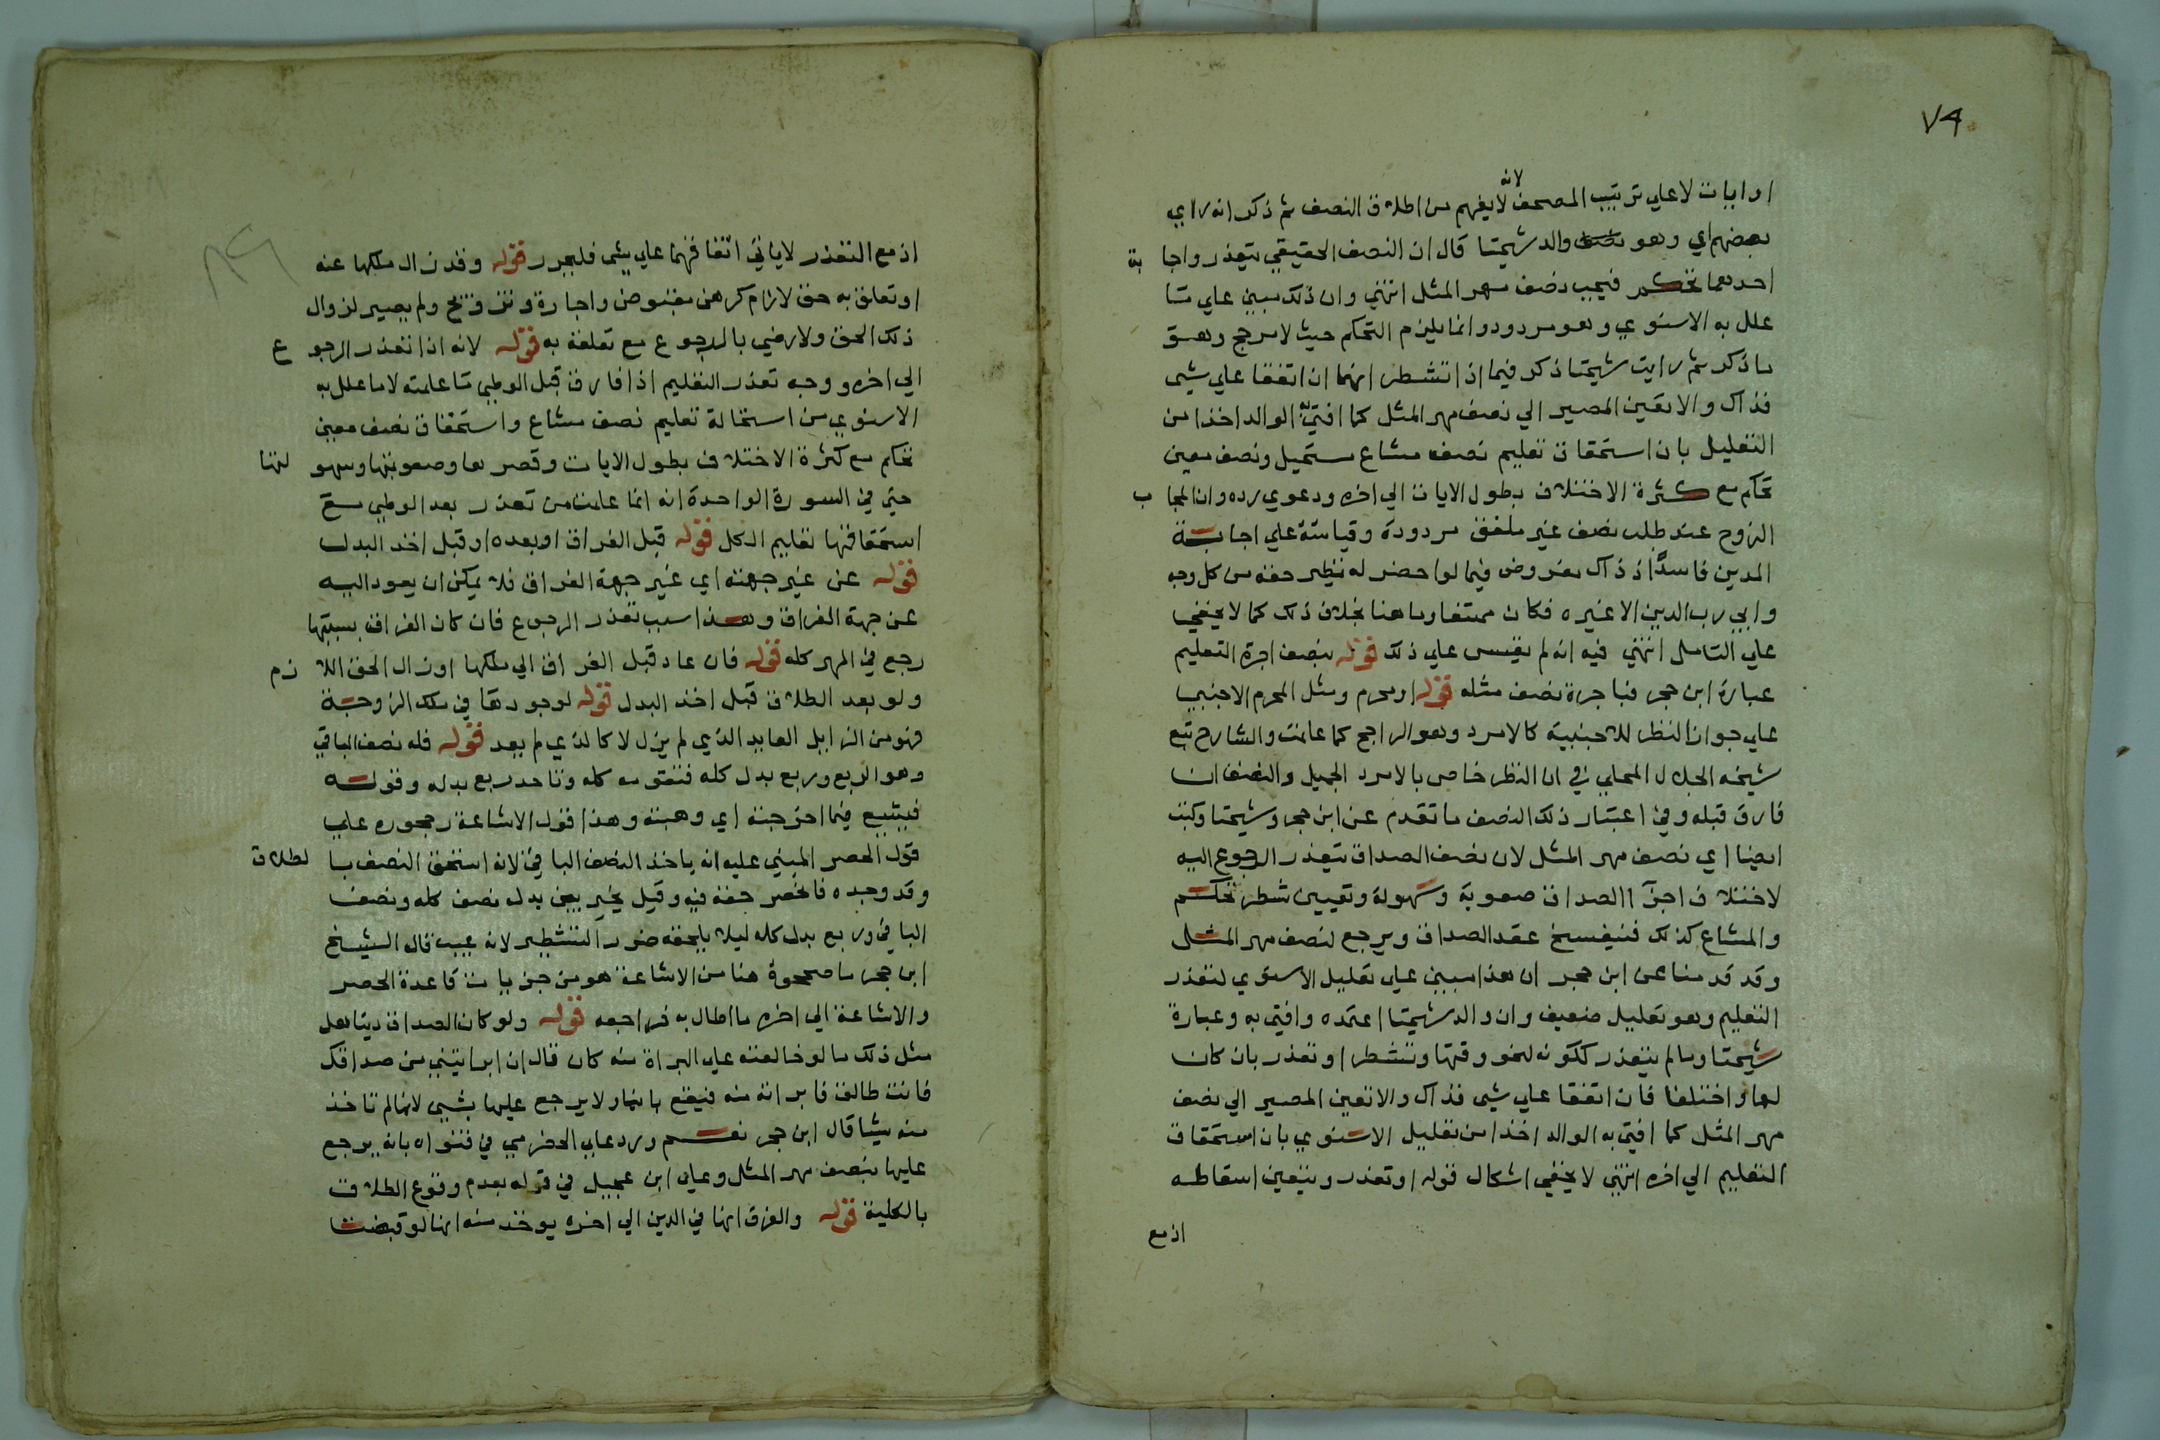 ٧٩
او ايات لا علي ترتيب المصحف لانه لا يفهم من اطلاق النصف ثم ذكر انه راي
بعضهم اي وهو والد شيخنا قال ان النصف الحقيقي يتعذر واجابة
احدهما تحكم فيجب نصف مهر المثل انتهي وان ذلك مبين علي ما
علل به الاسنوي وهو مردود وانما يلزم التحكم حيث لا مرجح وهو
ما ذكر ثم رايت شيخنا ذكر فيما اذا تشطر انهما ان اتفقا علي شي
فذاك والا تعين المصير الي نصف مهر المثل كما افتي به الوالد اخذا من
التعليل بان استحقاق تعليم نصف مشاع مستحيل ونصف معين
تحكم مع كثرة الاختلاف بطول الايات الي اخره ودعوي رده وان المجاب
الزوج عند طلب نصف غير ملفق مردودة وقياسه علي اجابة
المدين فاسد اذ ذاك مفروض فيما لو احضر له نظير حقه من كل وجه
وابي رب الدين الا غيره فكان متعنتا وما هنا بخلاف ذلك كما لا يخفي
علي التامل انتهي فيه انه لم يقس علي ذلك قوله بنصف اجرة التعليم
عبارة ابن حجر فباجرة نصف مثله قوله او محرم ومثل المحرم الاجنبي
علي جواز النظر للاجنبية كالامرد وهو الراجح كما علمت والشارح تبع
شيخه الجلال المحلي في ان النظر خاص بالامرد الجميل والنصف ان
فارق قبله وفي اعتبار ذلك النصف ما تقدم عن ابن حجر وشيخنا وكتب
ايضا اي نصف مهر المثل لان نصف الصداق يتعذر الرجوع اليه
لاختلاف اجزا الصداق صعوبة وسهولة وتعيين شطر تحكم
والمشاع كذلك فينفسخ عقد الصداق ويرجع لنصف مهر المثل
وقد قدمنا عن ابن حجر ان هذا مبين علي تعليل الاسنوي لتعذر
التعليم وهو تعليل ضعيف وان والد شيخنا اعتمده وافتي به وعبارة
شيخنا وما لم يتعذر ككونه لنحو وقتها وتشطر او تعذر بان كان
لها واختلفا فان اتفقا علي شي فذاك والا تعين المصير الي نصف
مهر المثل كما افتي به الوالد اخذا من تعليل الاسنوي بان استحقاق
التعليم الي اخره انتهي لا يخفي اشكال قوله او تعذر ويتعين اسقاطه
اذ مع
اذ مع التعذر لا ياتي اتفاقهما علي شي فليحرر قوله وقد زال ملكها عنه
او تعلق به حق لازم كرهن مقبوض واجارة وتزويج ولم يصبر لزوال
ذلك الحق ولا رضي بالرجوع مع تعلقه به قوله لانه اذا تعذر الرجوع
الي اخره ووجه تعذر التعليم اذا فارق قبل الوطي ما علمته لا ما علل به
الاسنوي من استحالة تعليم نصف مشاع واستحقاق نصف معين
تحكم مع كثرة الاختلاف بطول الايات وقصرها وصعوبتها وسهولتها
حتي في السورة الواحدة انه انما علمت من تعذر بعد الوطي مع
استحقاقها تعليم الكل قوله قبل الفراق او بعده او قبل اخذ البدل
قوله عن غير جهته اي غير جهة الفراق فلا يمكن ان يعود اليه
عن جهة الفراق وهذا سبب تعذر الرجوع فان كان الفراق بسببها
رجع في المهر كله قوله فان عاد قبل الفراق الي ملكها او زال الحق اللازم
ولو بعد الطلاق قبل اخذ البدل قوله لوجودها في ملك الزوجة
فهو من الزايل العايد الذي لم يزل لا كالذي لم يعد قوله فله نصف الباقي
وهو الربع وربع بدل كله فتقومه كله وتاخذ ربع بدله وقوله
فيتبع فيما اخرجته اي وهبته وهذا قول الاشاعة رجحوه علي
قول الحصر المبني عليه انه ياخذ النصف الباقي لانه استحق النصف بالطلاق
وقد وجده فانحصر حقه فيه وقيل يخير بين بدل نصف كله ونصف
الباقي وربع بدل كله ليلا يلحقه ضرر التشطير لانه عيب قال الشيخ
ابن حجر ما صححوه هنا من الاشاعة هو من جزييات قاعدة الحصر
والاشاعة الي اخره ما اطال به فراجعه قوله ولو كان الصداق دينا هل
مثل ذلك ما لو خالعته علي البراة منه كان قال ان ابراتيني من صداقك
فانت طالق فابراته منه فيقع باينا ولا يرجع عليها بشي لانها لم تاخذ
منه شيا قال ابن حجر نعم ورد علي الحضرمي في فتواه بانه يرجع
عليها بنصف مهر المثل وعلي ابن عجيل في قوله بعدم وقوع الطلاق
بالكلية قوله والفرق انها في الدين الي اخره يوخذ منه انها لو قبضت